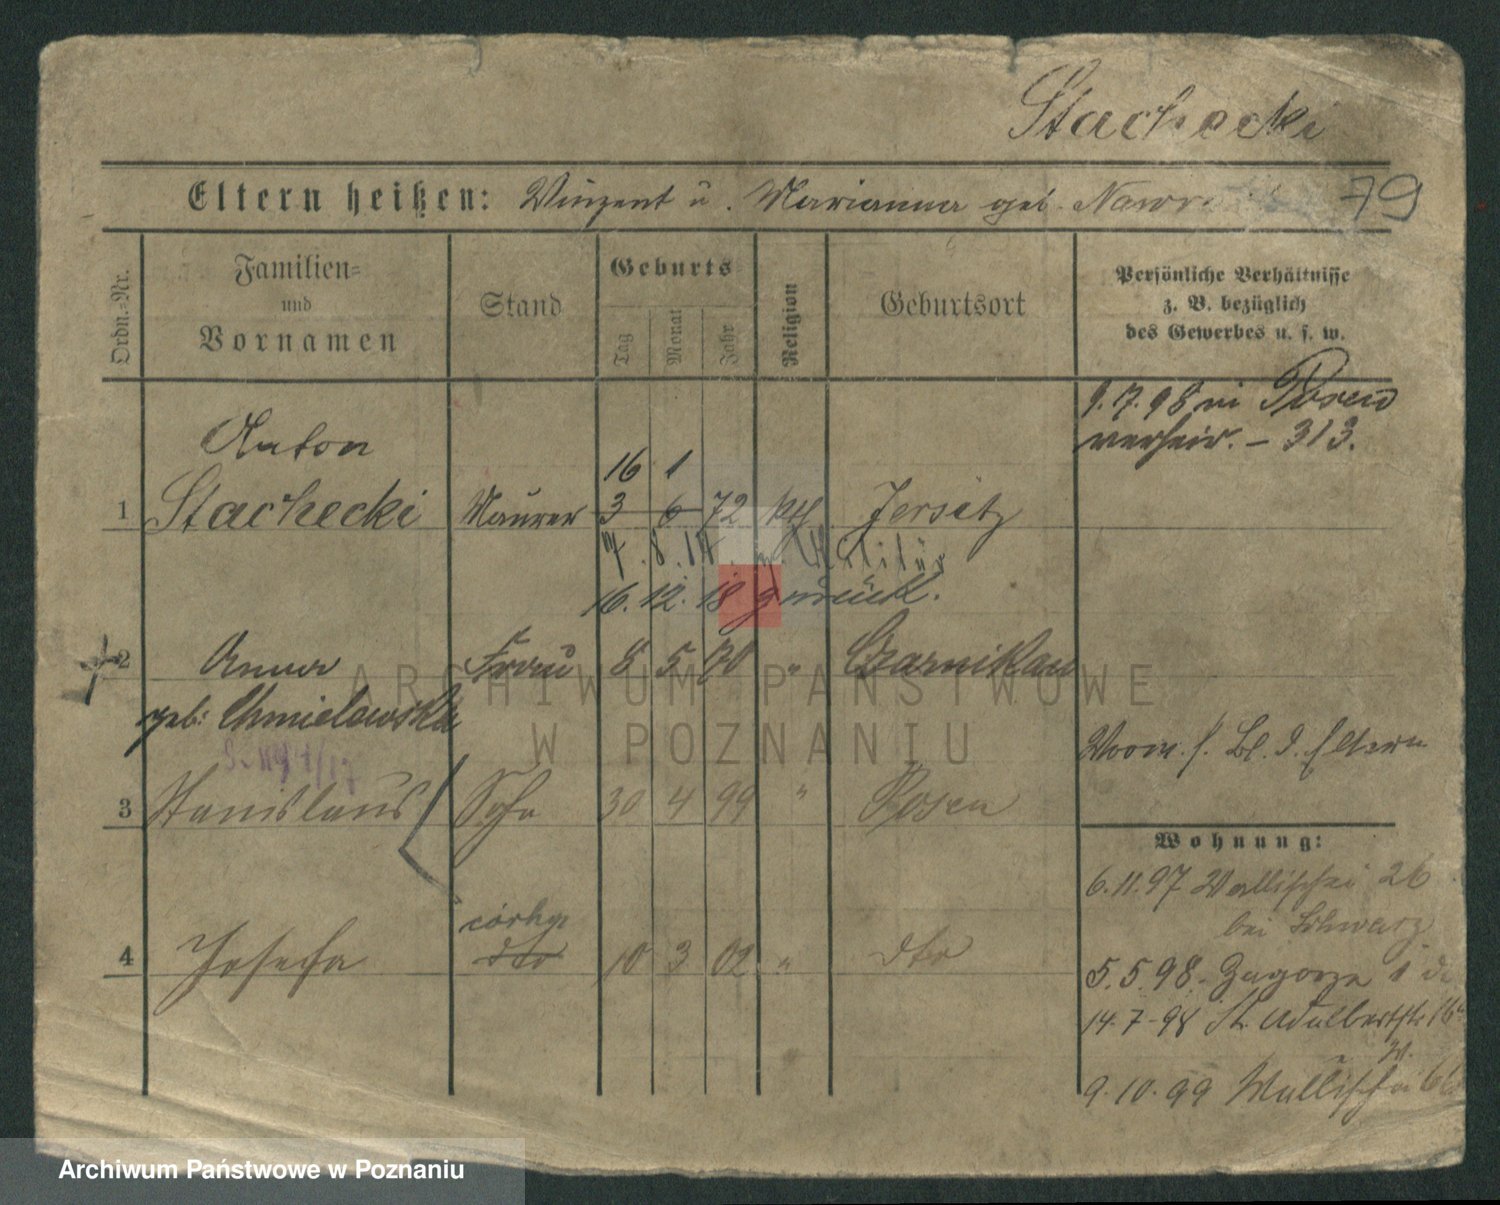 Stachecki
Eltern heißen: Vinzent u. Marianna geb. 79
Ordn.=Nr.
Familien=
und
Vornamen
Stand
Geburts
Tag
Monat
Jahr
Religion
Geburtsort
Persönliche Verhältnisse
z. B. bezüglich
des Gewerbes u. s. w.
9.7.98 in Posen
verheir. – 313.
Anton
16 1
1 Stachecki Maurer 3 6 72 kth Jersitz
7.8.14. z. Militär
16.12.18 zurück.
2 Anna Frau 8 5 70 " Czarnikau
geb: Chmielewska
Woow. s. Bl. d. Eltern
3 Stanislaus Sohn 30 4 99 " Posen
Wohnung:
6.11.97 Wallischei 26
bei Schwarz
córka
4 Josefa dto 10 3 02 " dto
5.5.98. Zagorze 1
14.7.98 St. Adalbertstr 16
9.10.99 Wallischei 66
ARCHIWUM PAŃSTWOWE
W POZNANIU
Archiwum Państwowe w Poznaniu